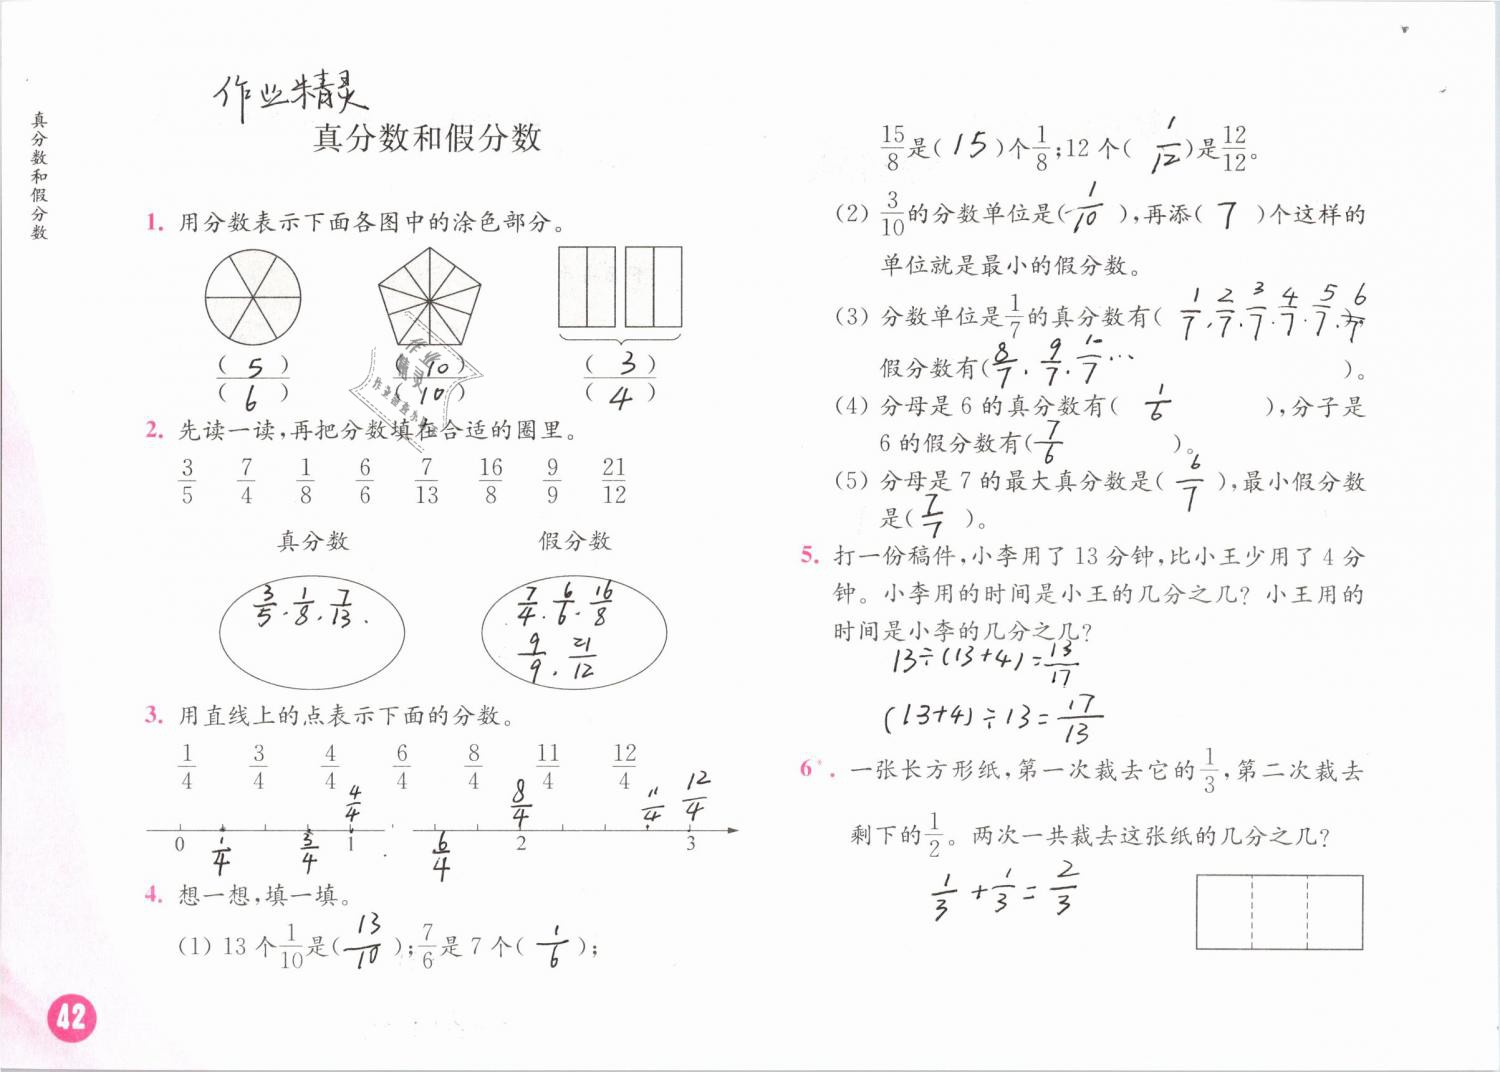 作业精灵
真分数和假分数
真分数和假分数
1. 用分数表示下面各图中的涂色部分。
(5)/(6) (10)/(10) (3)/(4)
作业精灵
2. 先读一读,再把分数填在合适的圈里。
3/5 7/4 1/8 6/6 7/13 16/8 9/9 21/12
真分数 假分数
3/5 . 1/8 . 7/13 . 7/4 . 6/6 . 16/8
9/9 . 21/12
3. 用直线上的点表示下面的分数。
1/4 3/4 4/4 6/4 8/4 11/4 12/4
4/4 8/4 11/4 12/4
0 1/4 3/4 1 6/4 2 3
4. 想一想,填一填。
(1) 13 个1/10是(13/10);7/6是 7 个(1/6);
42
15/8是(15)个1/8;12 个(1/12)是12/12。
(2) 3/10的分数单位是(1/10),再添(7)个这样的
单位就是最小的假分数。
(3) 分数单位是1/7的真分数有(1/7 . 2/7 . 3/7 . 4/7 . 5/7 . 6/7
假分数有(8/7 . 9/7 . 10/7 … )。
(4) 分母是 6 的真分数有(1/6),分子是
6 的假分数有(7/6)。
(5) 分母是 7 的最大真分数是(6/7),最小假分数
是(7/7)。
5. 打一份稿件,小李用了 13 分钟,比小王少用了 4 分
钟。小李用的时间是小王的几分之几? 小王用的
时间是小李的几分之几?
13÷(13+4)=13/17
(13+4)÷13=17/13
6*. 一张长方形纸,第一次裁去它的1/3,第二次裁去
剩下的1/2。两次一共裁去这张纸的几分之几?
1/3+1/3=2/3